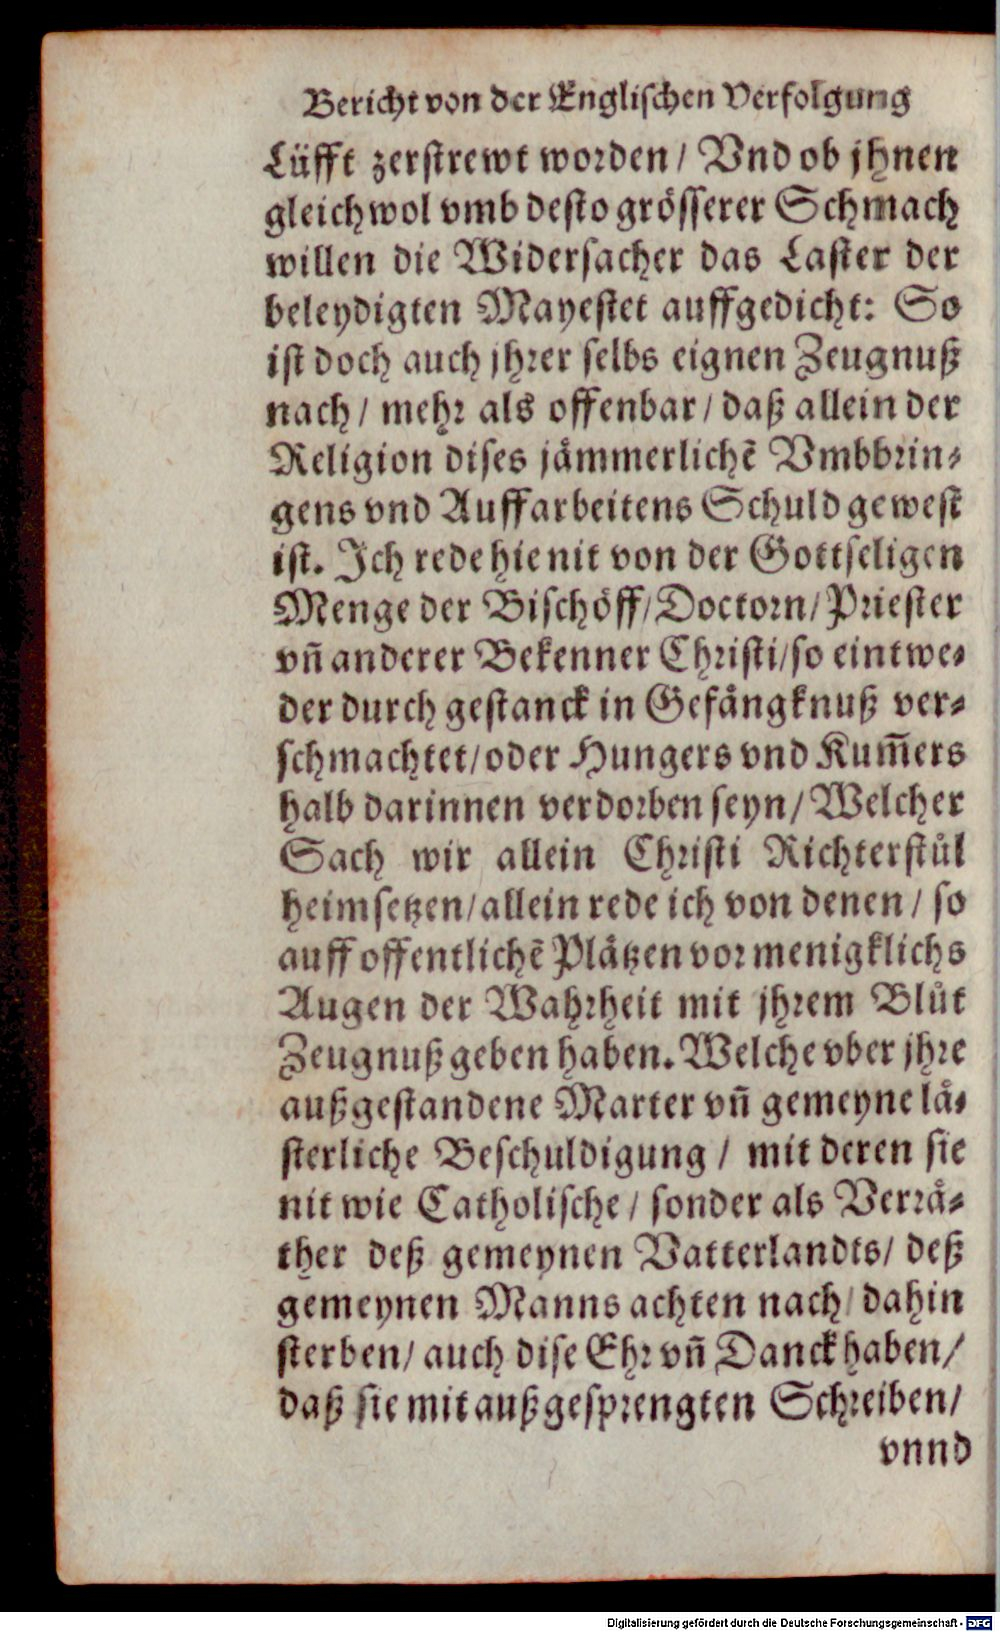 Bericht von der Englischen Verfolgung
Lüfft zerstrewt worden / Vnd ob jhnen
gleichwol vmb desto grösserer Schmach
willen die Widersacher das Laster der
beleydigten Mayestet auffgedicht: So
ist doch auch jhrer selbs eignen Zeugnuß
nach / mehr als offenbar / daß allein der
Religion dises jåmmerlichẽ Vmbbrin⸗
gens vnd Auffarbeitens Schuld gewest
ist. Ich rede hie nit von der Gottseligen
Menge der Bischöff / Doctorn / Priester
vñ anderer Bekenner Christi / so eintwe⸗
der durch gestanck in Gefångknuß ver⸗
schmachtet / oder Hungers vnd Kum̃ers
halb darinnen verdorben seyn / Welcher
Sach wir allein Christi Richterstůl
heimsetzen / allein rede ich von denen / so
auff offentlichẽ Plåtzen vor menigklichs
Augen der Wahrheit mit jhrem Blůt
Zeugnuß geben haben. Welche vber jhre
außgestandene Marter vñ gemeyne lå⸗
sterliche Beschuldigung / mit deren sie
nit wie Catholische / sonder als Verrå⸗
ther deß gemeynen Vatterlandts / deß
gemeynen Manns achten nach / dahin
sterben / auch dise Ehr vñ Danck haben /
daß sie mit außgesprengten Schreiben /
vnnd
Digitalisierung gefördert durch die Deutsche Forschungsgemeinschaft - DFG